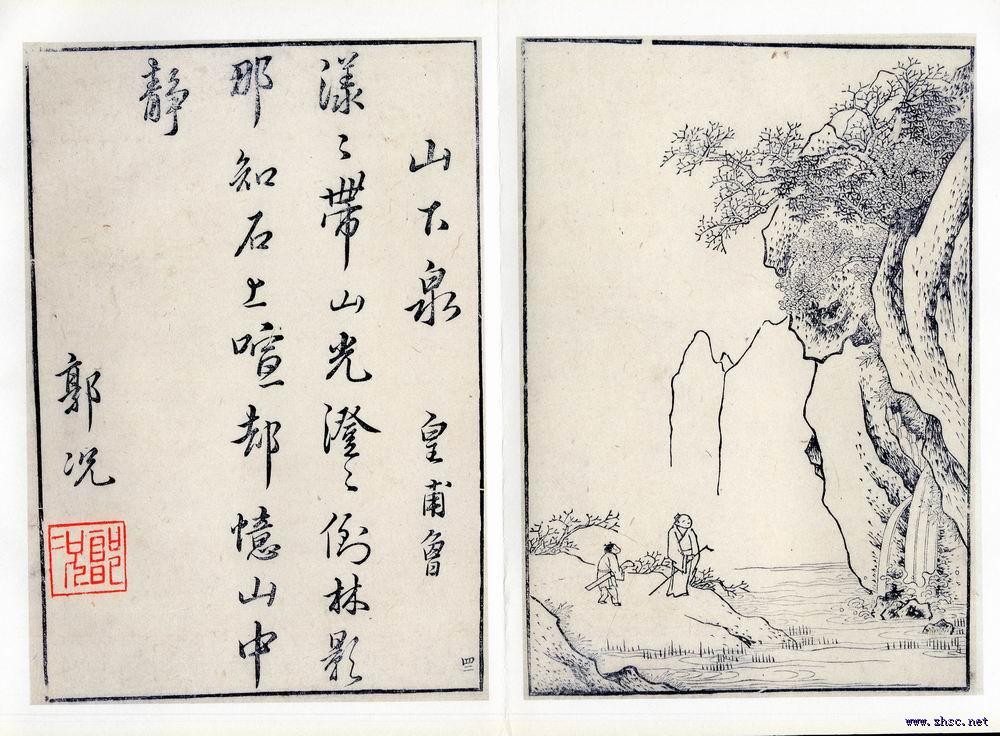 山下泉 皇甫曾
漾〻帶山光澄〻倒林影
那知石上喧却憶山中
靜
郭况
郭况
www.zhsc.net